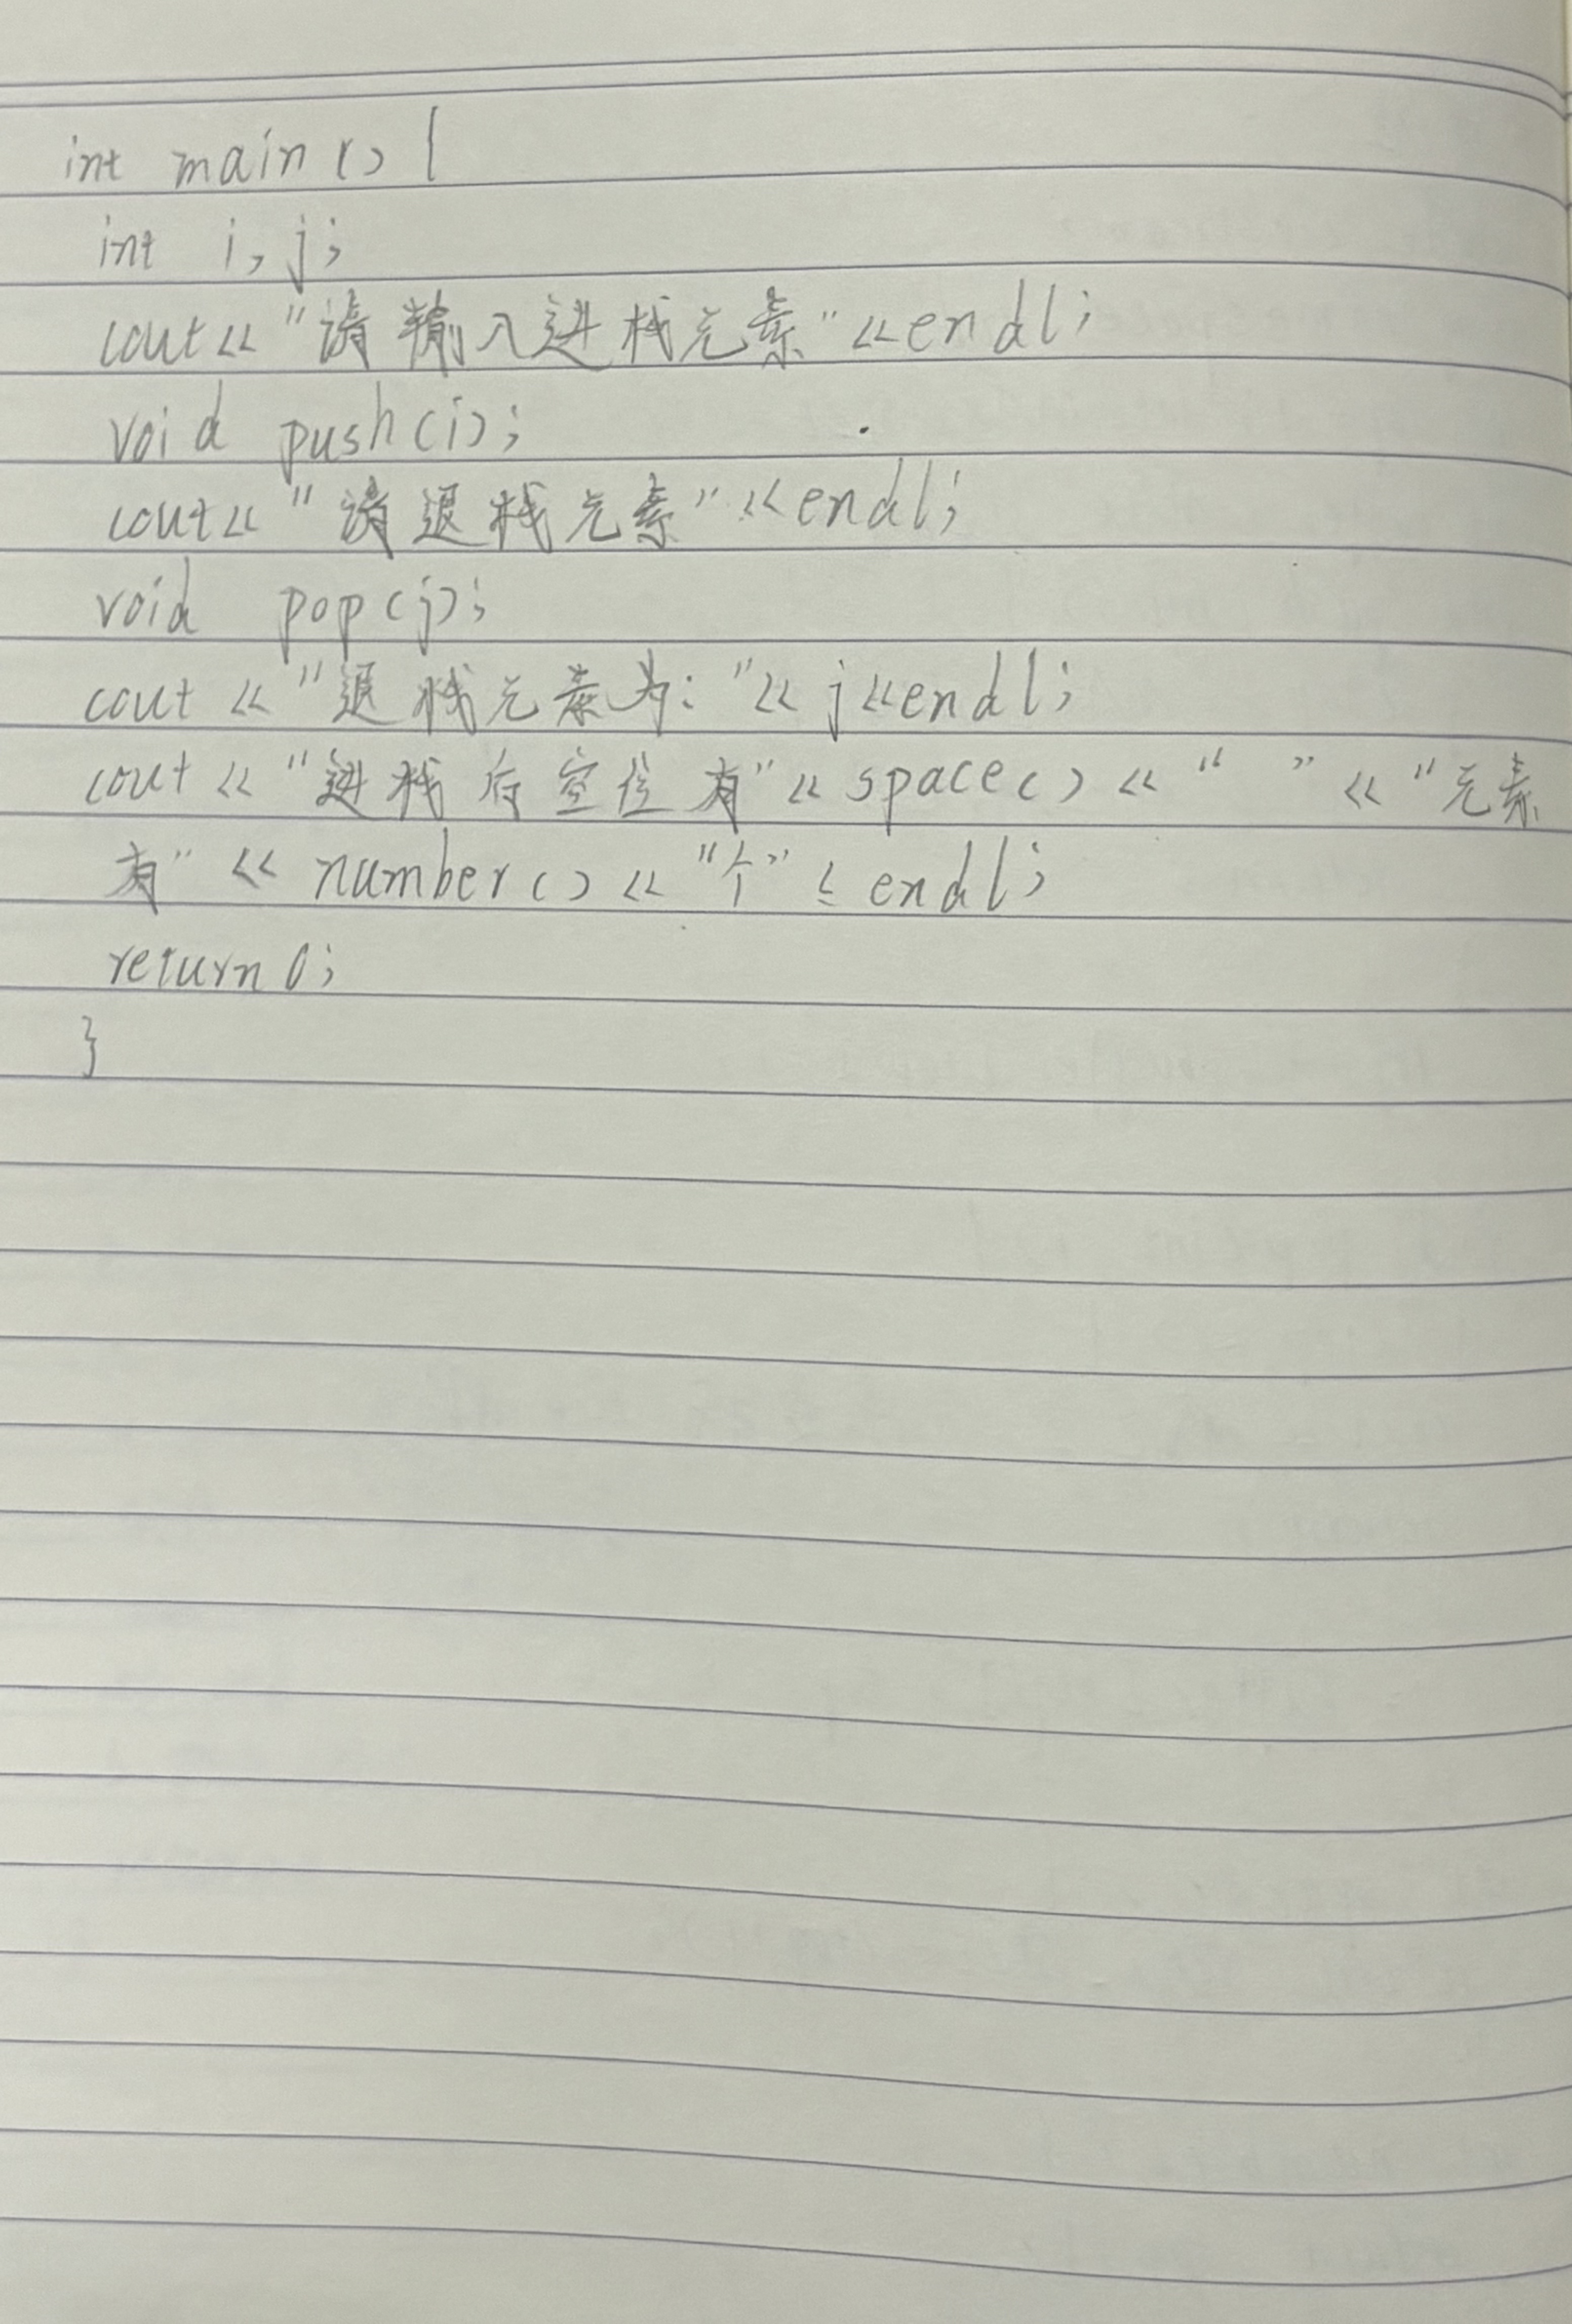 int main() {
int i, j;
cout<<"请输入进栈元素"<<endl;
void push(i);
cout<<"请退栈元素"<<endl;
void pop(j);
cout<<"退栈元素为:"<<j<<endl;
cout<<"进栈后空位有"<<space()<<" "<<"元素
有"<<number()<<"个"<<endl;
return 0;
}